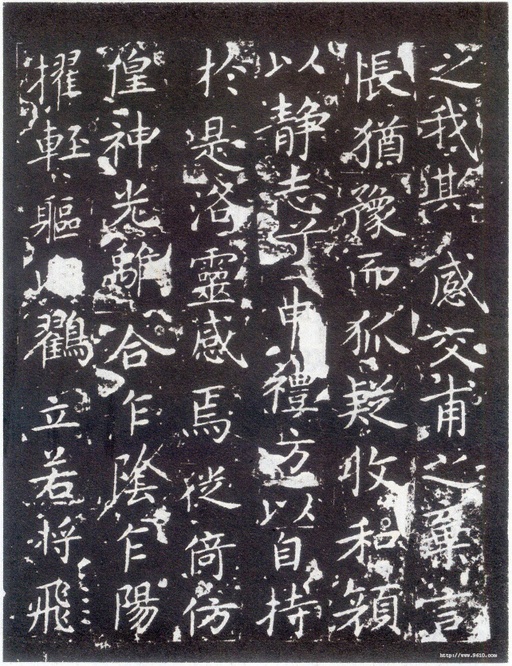 之我其感交甫之棄言
悵猶豫而狐疑收和顏
以靜志兮申禮方以自持
於是洛靈感焉徙倚仿
偟神光離合乍陰乍陽
擢輕軀以鶴立若將飛
http://www.9610.com